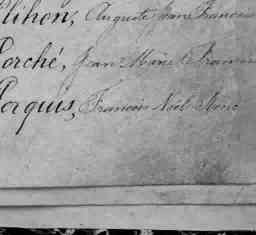 Auguste Jean François
Porché, Jean Marie
Porquis, François Noël